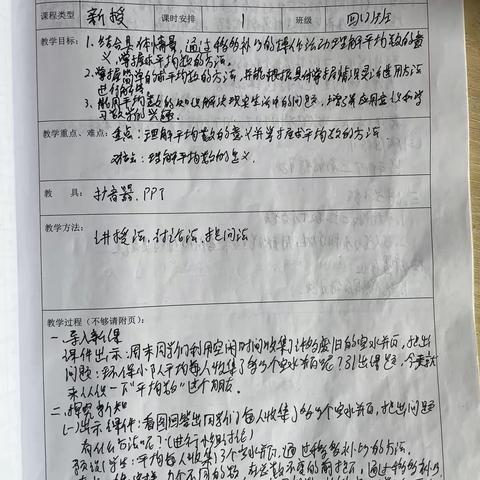 课程类型 新授 课时安排 1 班级 四(1)班
教学目标： 1、结合具体情景，通过移多补少的操作活动理解平均数的意
义，掌握求平均数的方法。
2、掌握简单的求平均数的方法，并能根据具体情况灵活选用方法
进行解答
3、能用平均数的知识解决现实生活中的问题，增强应用意识和学
习数学的兴趣。
教学重点、难点： 重点：理解平均数的意义并掌握求平均数的方法
难点：理解平均数的意义。
教 具： 扩音器、PPT
教学方法：
讲授法、讨论法、提问法
教学过程（不够请附页）：
一、导入新课
课件出示：周末同学们利用空闲时间收集了许多废旧的空水瓶，提出
问题：环保小队平均每人收集了多少个空水瓶呢？引出课题，今天就
来认识一下"平均数"这个朋友。
二、探究新知
(一)出示课件：看图回答出同学们每人收集了多少个空水瓶，提出问题
有什么方法呢？(进行小组讨论)
预设1：学生：平均每人收集13个空水瓶。通过移多补少的方法。
几个不同的数，在总数不变的前提下，通过移多补少，